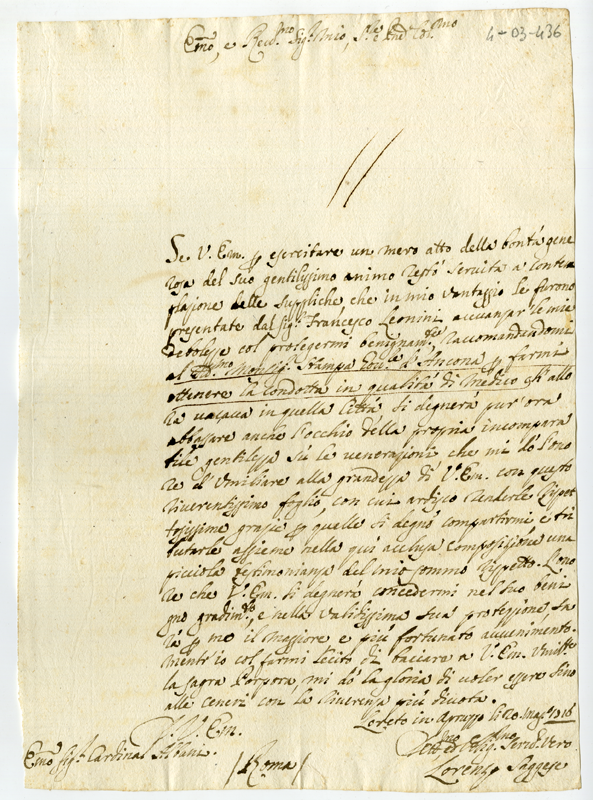 4-03-436
Emo, e Revmo Sigr Mio, Sre e Pne Colmo
Se V. Em. p esercitare un mero atto della bontà gene
rosa del suo gentilissimo animo restò servita a contem
plazione delle suppliche che in mio vantaggio le furono
presentate dal sigr Francesco Leonini avvanzar le mie
debolezze col proteggermi benignamte raccomandandomi
al Monsigr Stampa Govre d'Ancona p farmi
ottenere la condotta in qualità di Medico ch'allo
ra vacava in quella Città si degnerà pur'ora
abbassare anche l'occhio della propria incompara
bile gentilezza sù le venerazioni che mi dò l'ono
re d'umiliare alla grandezza di V. Em. con questo
riverentissimo foglio, con cui ardisco renderle rispet
tosissime grazie p quelle si degnò compartirmi e tri
butarle assieme nella quì acclusa composizione una
picciola testimonianza del mio sommo rispetto. L'ono
re che V. Em. si degnerà concedermi nel suo beni
gno gradimto, e nella validissima sua protezione sa
rà p me il maggiore e più fortunato avvenimento.
mentr'io col farmi lecito di baciare a V. Em. umilte
la sagra Porpora mi dò la gloria di voler essere sino
alle ceneri con la riverenza più divota.
Di V. Em.
Loreto in Apruzzo li 20 Mago 1716
Emo sigr Cardinal Albani.
/Roma/
Servre Vero
Lorenzo Saggese